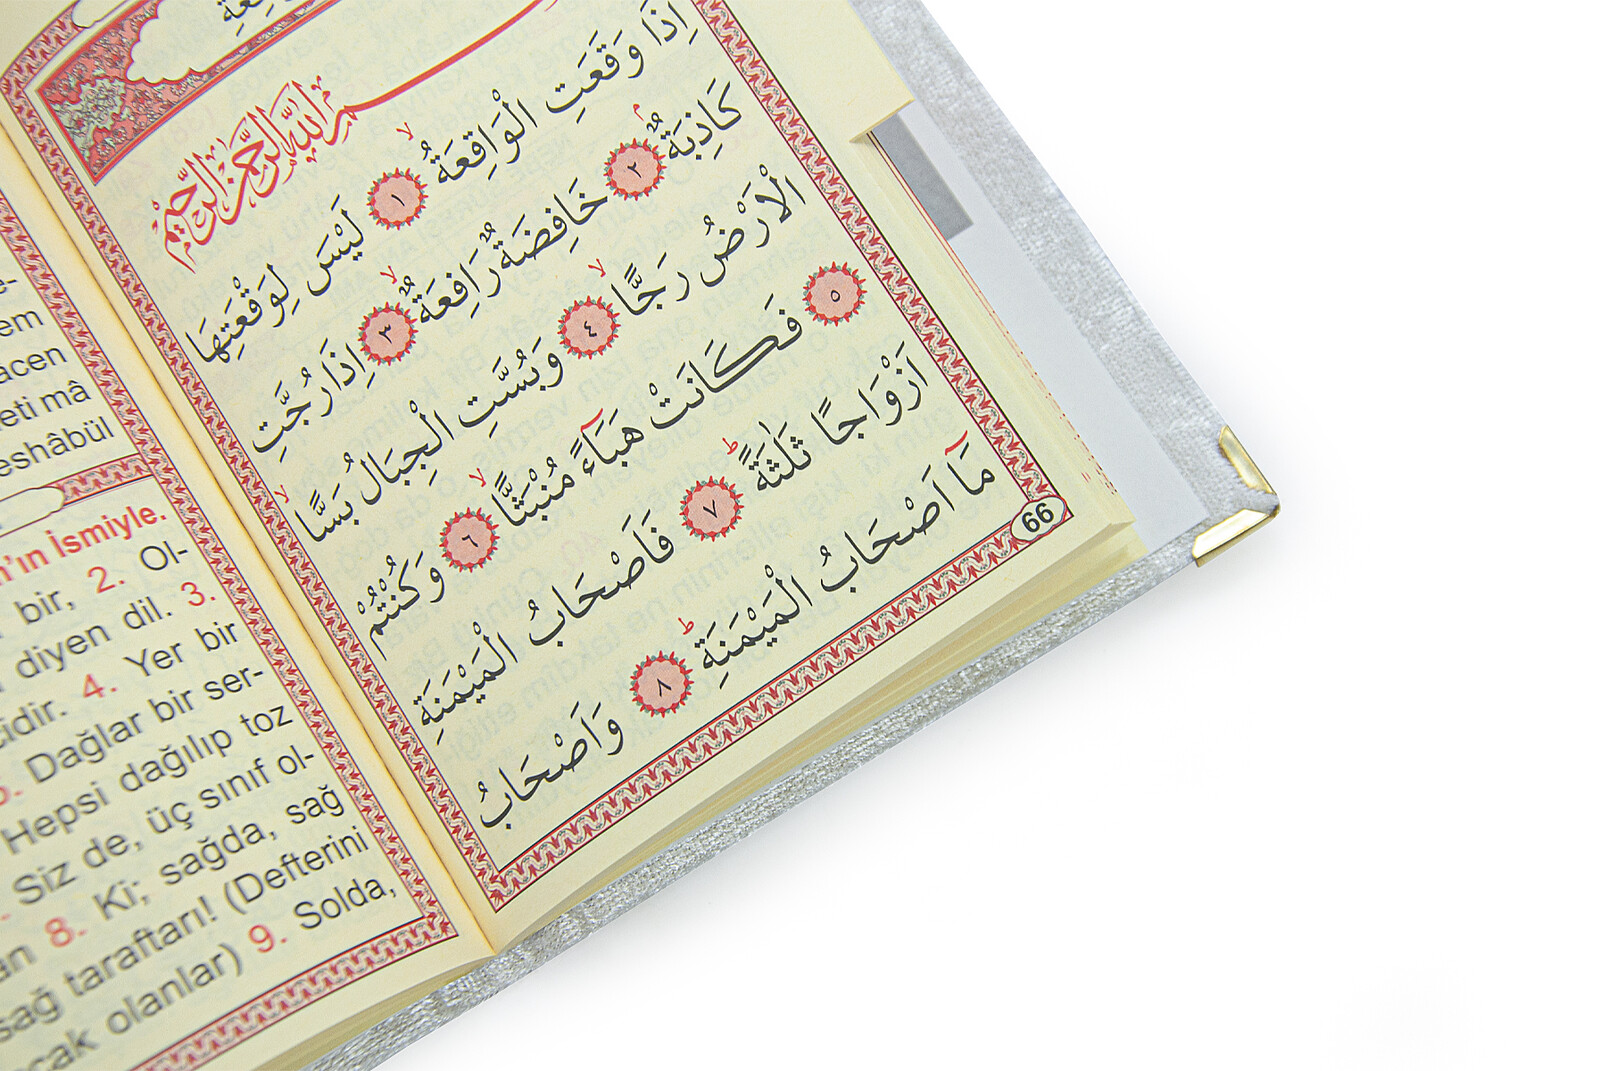 بسم الله الرحمن الرحيم
اِذَا وَقَعَتِ الْوَاقِعَةُ ۙ ﴿١﴾ لَيْسَ لِوَقْعَتِهَا
كَاذِبَةٌ ۢ ﴿٢﴾ خَافِضَةٌ رَافِعَةٌ ۙ ﴿٣﴾ اِذَا رُجَّتِ
الْاَرْضُ رَجًّا ۙ ﴿٤﴾ وَبُسَّتِ الْجِبَالُ بَسًّا ۙ
﴿٥﴾ فَكَانَتْ هَبَٓاءً مُنْبَثًّا ۙ ﴿٦﴾ وَكُنْتُمْ
اَزْوَاجًا ثَلٰثَةً ۜ ﴿٧﴾ فَاَصْحَابُ الْمَيْمَنَةِ
مَٓا اَصْحَابُ الْمَيْمَنَةِ ۜ ﴿٨﴾ وَاَصْحَابُ
66
em
acen
eti mâ
eshâbül
n'ın İsmiyle.
bir, 2. Ol-
diyen dil. 3.
cidir. 4. Yer bir
Dağlar bir ser-
Hepsi dağılıp toz
Siz de, üç sınıf ol-
an 8. Ki; sağda, sağ
sağ taraftarı! (Defterini
acak olanlar) 9. Solda,